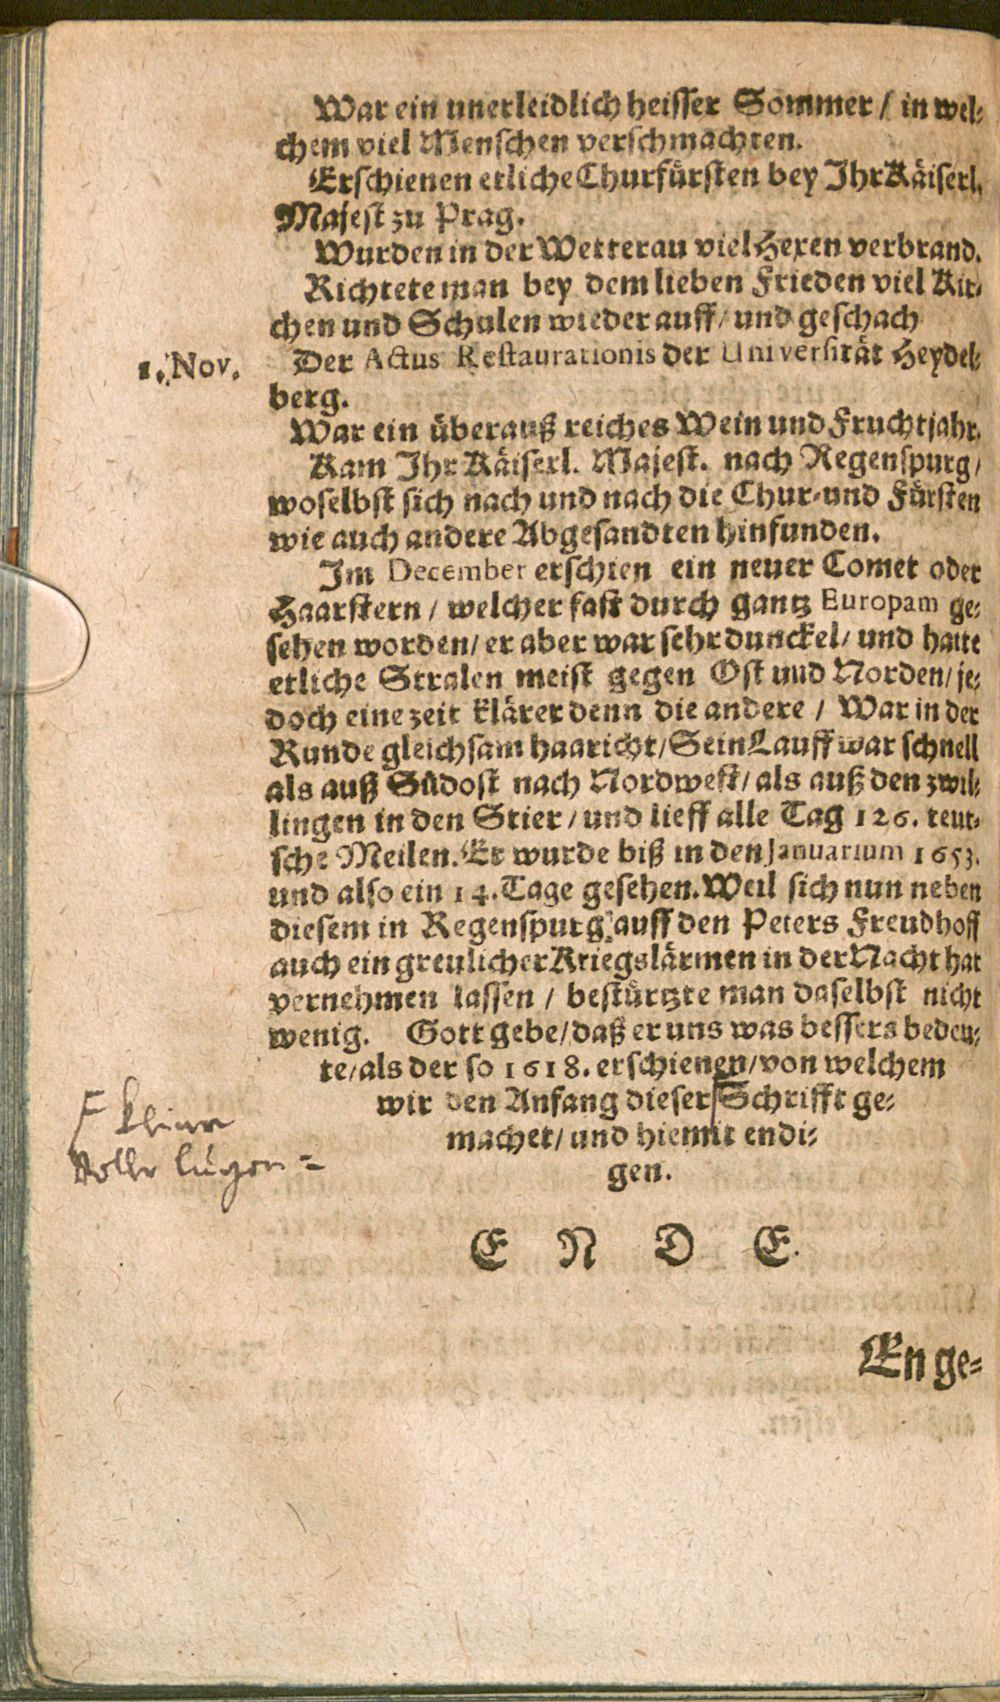 War ein unerleidlich heisser Sommer / in wel-
chem viel Menschen verschmachten.
Erschienen etliche Churfürsten bey Ihr Käiserl.
Majest zu Prag.
Wurden in der Wetterau viel Hexen verbrand.
Richtete man bey dem lieben Frieden viel Kir-
chen und Schulen wieder auff / und geschach
1. Nov. Der Actus Restaurationis der Universität Heydel-
berg.
War ein überauß reiches Wein und Fruchtjahr.
Kam Ihr Käiserl. Majest. nach Regenspurg /
woselbst sich nach und nach die Chur-und Fürsten
wie auch andere Abgesandten hinfunden.
Im December erschien ein neuer Comet oder
Haarstern / welcher fast durch gantz Europam ge-
sehen worden / er aber war sehr dunckel / und hatte
etliche Stralen meist gegen Ost und Norden / je-
doch eine zeit klärer denn die andere / War in der
Runde gleichsam haaricht / Sein Lauff war schnell
als auß Südost nach Nordwest / als auß den zwil-
lingen in den Stier / und lieff alle Tag 126. teut-
sche Meilen. Er wurde biß in den Januarium 1653.
und also ein 14. Tage gesehen. Weil sich nun neben
diesem in Regenspurg auff den Peters Freudhoff
auch ein greulicher Kriegslärmen in der Nacht hat
vernehmen lassen / bestürtzte man daselbst nicht
wenig. Gott gebe / daß er uns was bessers bedeu-
te / als der so 1618. erschienen / von welchem
wir den Anfang dieser Schrifft ge-
machet / und hiemit endi-
gen.
volle lügen =
E N D E.
Enge-